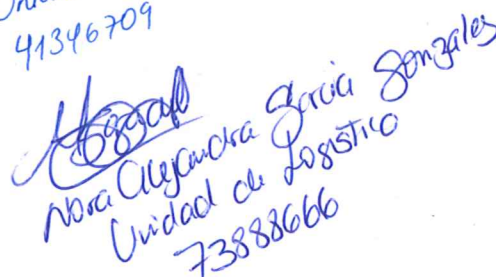 41346709
Nora Alejandra Garcia Gonzales
Unidad de Logistica
73888666